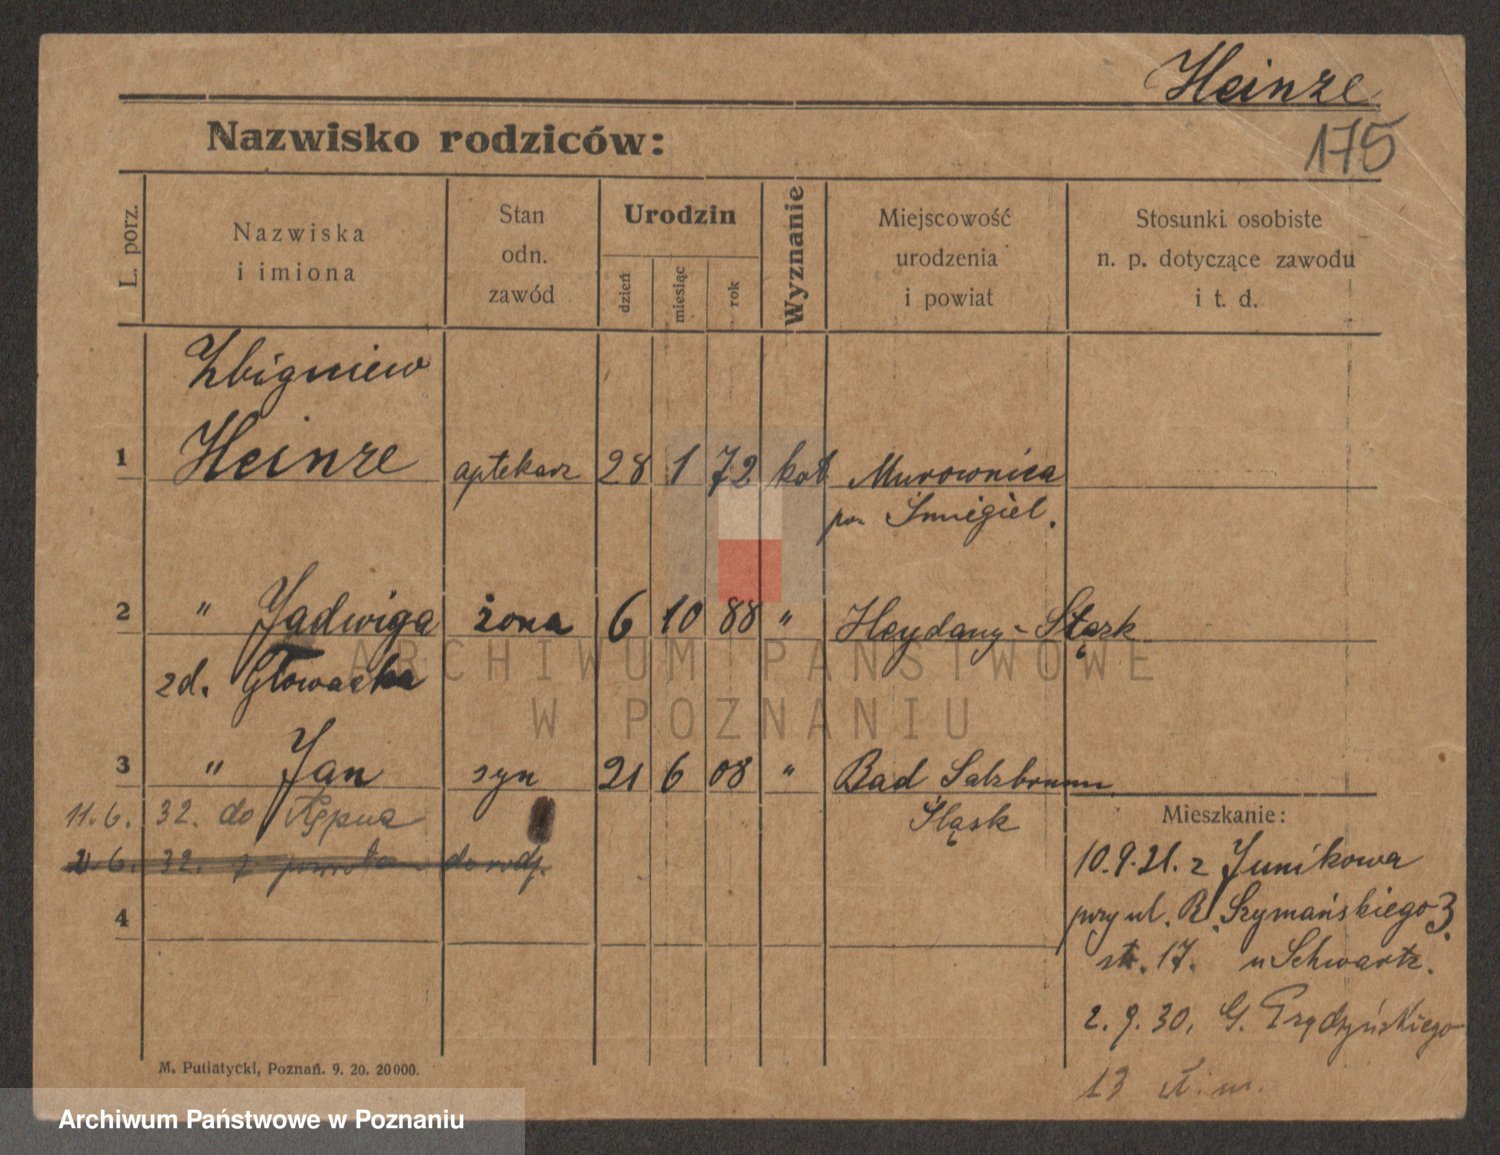 Heinze
175
Nazwisko rodziców:
L. porz.
Nazwiska
i imiona
Stan
odn.
zawód
Urodzin
dzień
miesiąc
rok
Wyznanie
Miejscowość
urodzenia
i powiat
Stosunki osobiste
n. p. dotyczące zawodu
i t. d.
Zbigniew
1 Heinze aptekarz 28 1 72 kat Murownica
pow Śmigiel.
2 " Jadwiga żona 6 10 88 "
zd. Głowacka
3 " Jan syn 21 6 08 " Bad Salzbrunn
Śląsk
11.6. 32. do Kępna
6. 32. z do
4
Mieszkanie:
10.9.21. z Junikowa
przy ul. R. Szymańskiego 3.
17. u Schwartz.
2. 9. 30, G. Prądzyńskiego
13
M. Putiatycki, Poznań. 9. 20. 20000.
ARCHIWUM PAŃSTWOWE
W POZNANIU
Archiwum Państwowe w Poznaniu